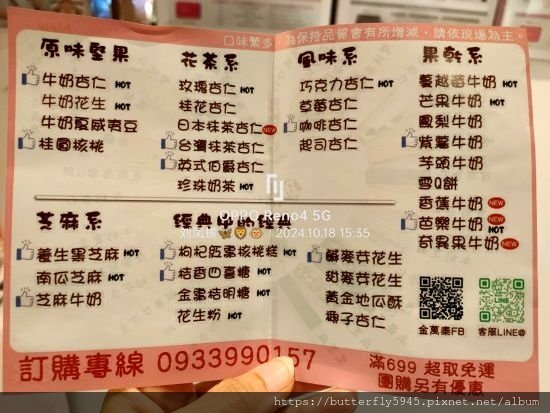 口味繁多,為保持品質會有所增減,請依現場為主。
原味堅果
牛奶杏仁 HOT
牛奶花生 HOT
牛奶夏威夷豆
桂圓核桃
花茶系
玫瑰杏仁 HOT
桂花杏仁
日本抹茶杏仁 NEW
台灣抹茶杏仁
英式伯爵杏仁
珍珠奶茶 HOT
風味系
巧克力杏仁 HOT
草莓杏仁
咖啡杏仁
起司杏仁
果乾系
蔓越莓牛奶 HOT
芒果牛奶 HOT
鳳梨牛奶
紫薯牛奶
芋頭牛奶
雪Q餅
香蕉牛奶 NEW
芭樂牛奶 NEW HOT
奇異果牛奶 NEW
芝麻系
養生黑芝麻 HOT
南瓜芝麻 HOT
芝麻牛奶
經典
枸杞 核桃糕 HOT
桔香四喜糖 HOT
金棗桔明糖 HOT
花生粉 HOT
鹹芽花生
甜麥芽花生
黃金地瓜酥
椰子杏仁
OPPO Reno4 5G
2024.10.18 15:35
LINE
金萬泰FB 客服LINE@
訂購專線 0933990157
滿699 超取免運
團購另有優惠
https://butterfly5945.pixnet.net/album